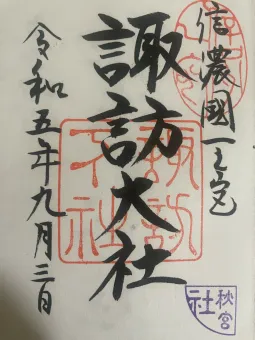 信濃國一之宮
諏訪大社
令和五年九月三日
秋宮
社